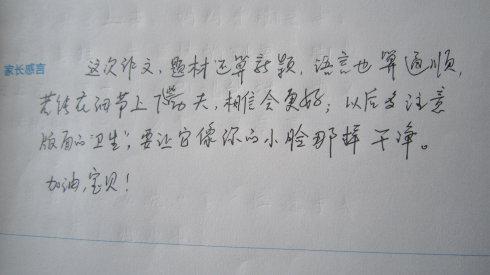 家长感言 这次作文，题材还算新颖，语言也算通顺，
若能在细节上下点功夫，相信会更好；以后多注意
版面的卫生，要让它像你的小脸那样干净。
加油，宝贝！